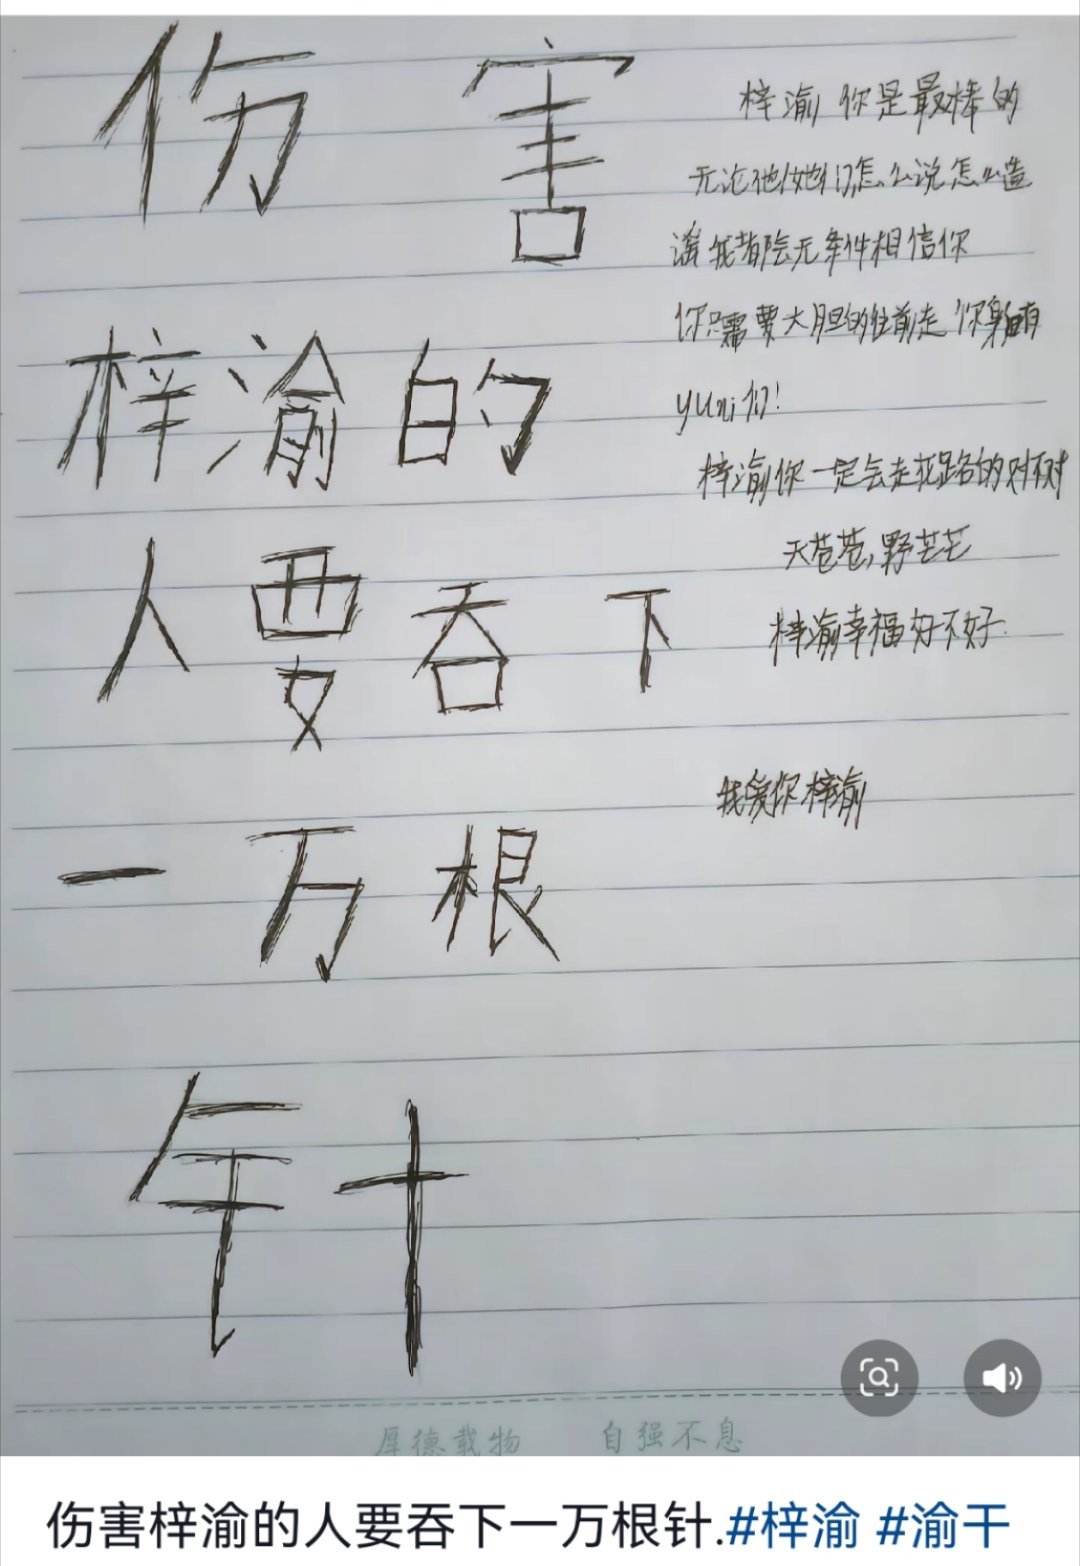 伤害
梓渝的
人要吞下
一万根
针
梓渝 你是最棒的
无论他/她们怎么说怎么造
谣我都会无条件相信你
你只需要大胆的往前走 你身后有
yuni们!
梓渝你一定会走花路的对不对
天苍苍,野芒芒
梓渝幸福好不好
我爱你梓渝
厚德载物 自强不息
伤害梓渝的人要吞下一万根针.#梓渝 #渝干